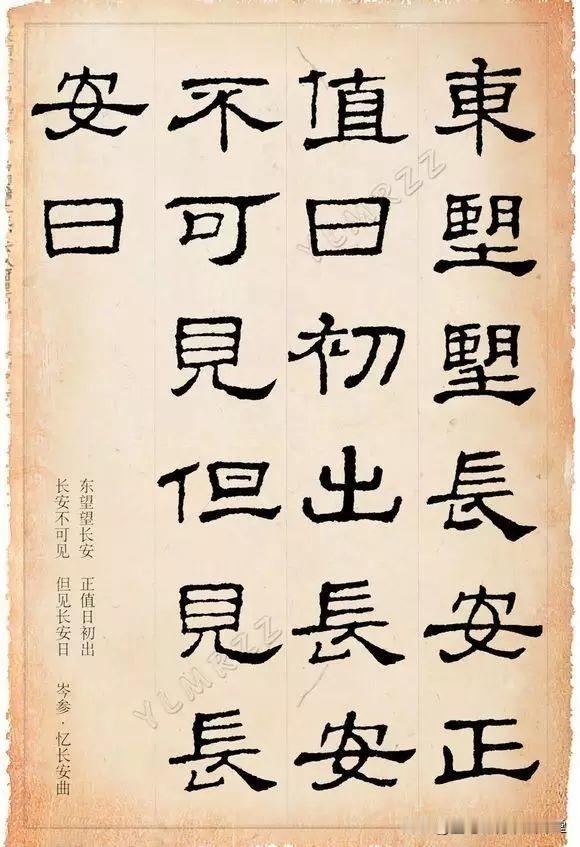 東朢朢長安正
值日初出長安
不可見但見長
安日
东望望长安 正值日初出
长安不可见 但见长安日 岑参·忆长安曲
YLMRZZ
YLMRZZ